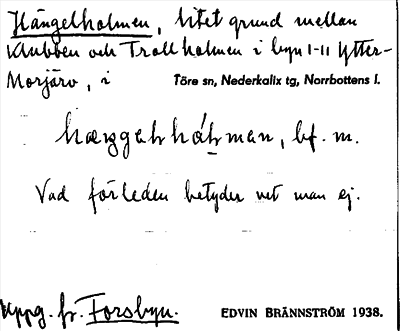 Hängelholmen, litet grund mellan
Klubben och Trollholmen i byn 1-11 Ytter-
Morjärv, i Töre sn, Nederkalix tg, Norrbottens l.
bf. m.
Vad förleden betyder vet man ej.
Uppg. fr. Forsbyn. EDVIN BRÄNNSTRÖM 1938.